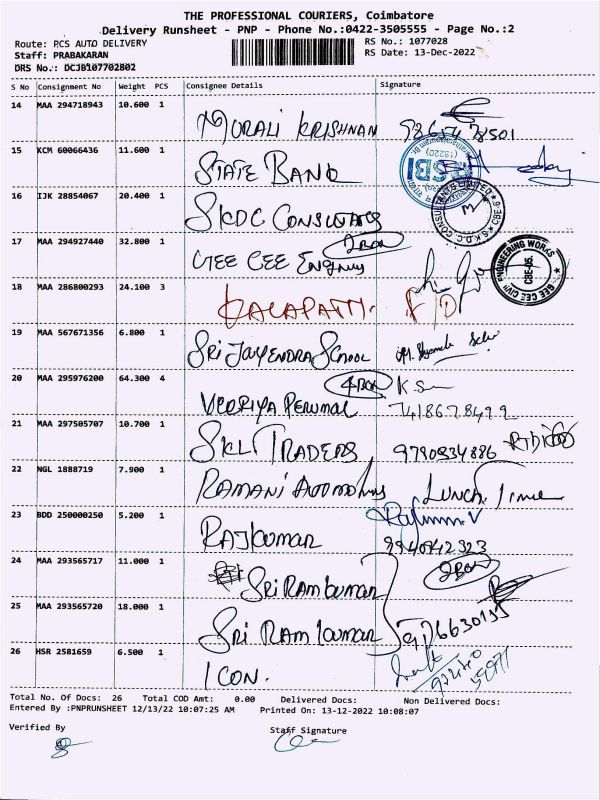 THE PROFESSIONAL COURIERS, Coimbatore
Delivery Runsheet - PNP - Phone No.:0422-3505555 - Page No.:2
Route: PCS AUTO DELIVERY RS No.: 1077028
Staff: PRABAKARAN RS Date: 13-Dec-2022
DRS No.: DCJB107702802
S No Consignment No Weight PCS Consignee Details Signature
14 MAA 294718943 10.600 1
MURALI KRISHNAN
15 KCM 60066436 11.600 1
STATE BANK SBI
16 IJK 28854067 20.400 1
SKDC CONSULTANTS
17 MAA 294927440 32.800 1
GEE CEE Engineering 2 BOX
GEE CEE CIVIL ENGINEERING WORKS CBE-05.
18 MAA 286800293 24.100 3
KALAPATTI. F/D
19 MAA 567671356 6.800 1
SRI JAYENDRA SCHOOL
20 MAA 295976200 64.300 4
VEERIYA PERUMAL 4 BOX 7418678499
21 MAA 297505707 10.700 1
SKLT TRADERS 9790534886
22 NGL 1888719 7.900 1
RAMANI AUTOMOTIVES LUNCH Time
23 BDD 250000250 5.200 1
RAJKUMAR 9940942323
24 MAA 293565717 11.000 1
SRI RAM KUMAR 2 BOX
25 MAA 293565720 18.000 1
SRI RAM KUMAR
26 HSR 2581659 6.500 1
ICON.
Total No. Of Docs: 26 Total COD Amt: 0.00 Delivered Docs: Non Delivered Docs:
Entered By :PNPRUNSHEET 12/13/22 10:07:25 AM Printed On: 13-12-2022 10:08:07
Verified By Staff Signature